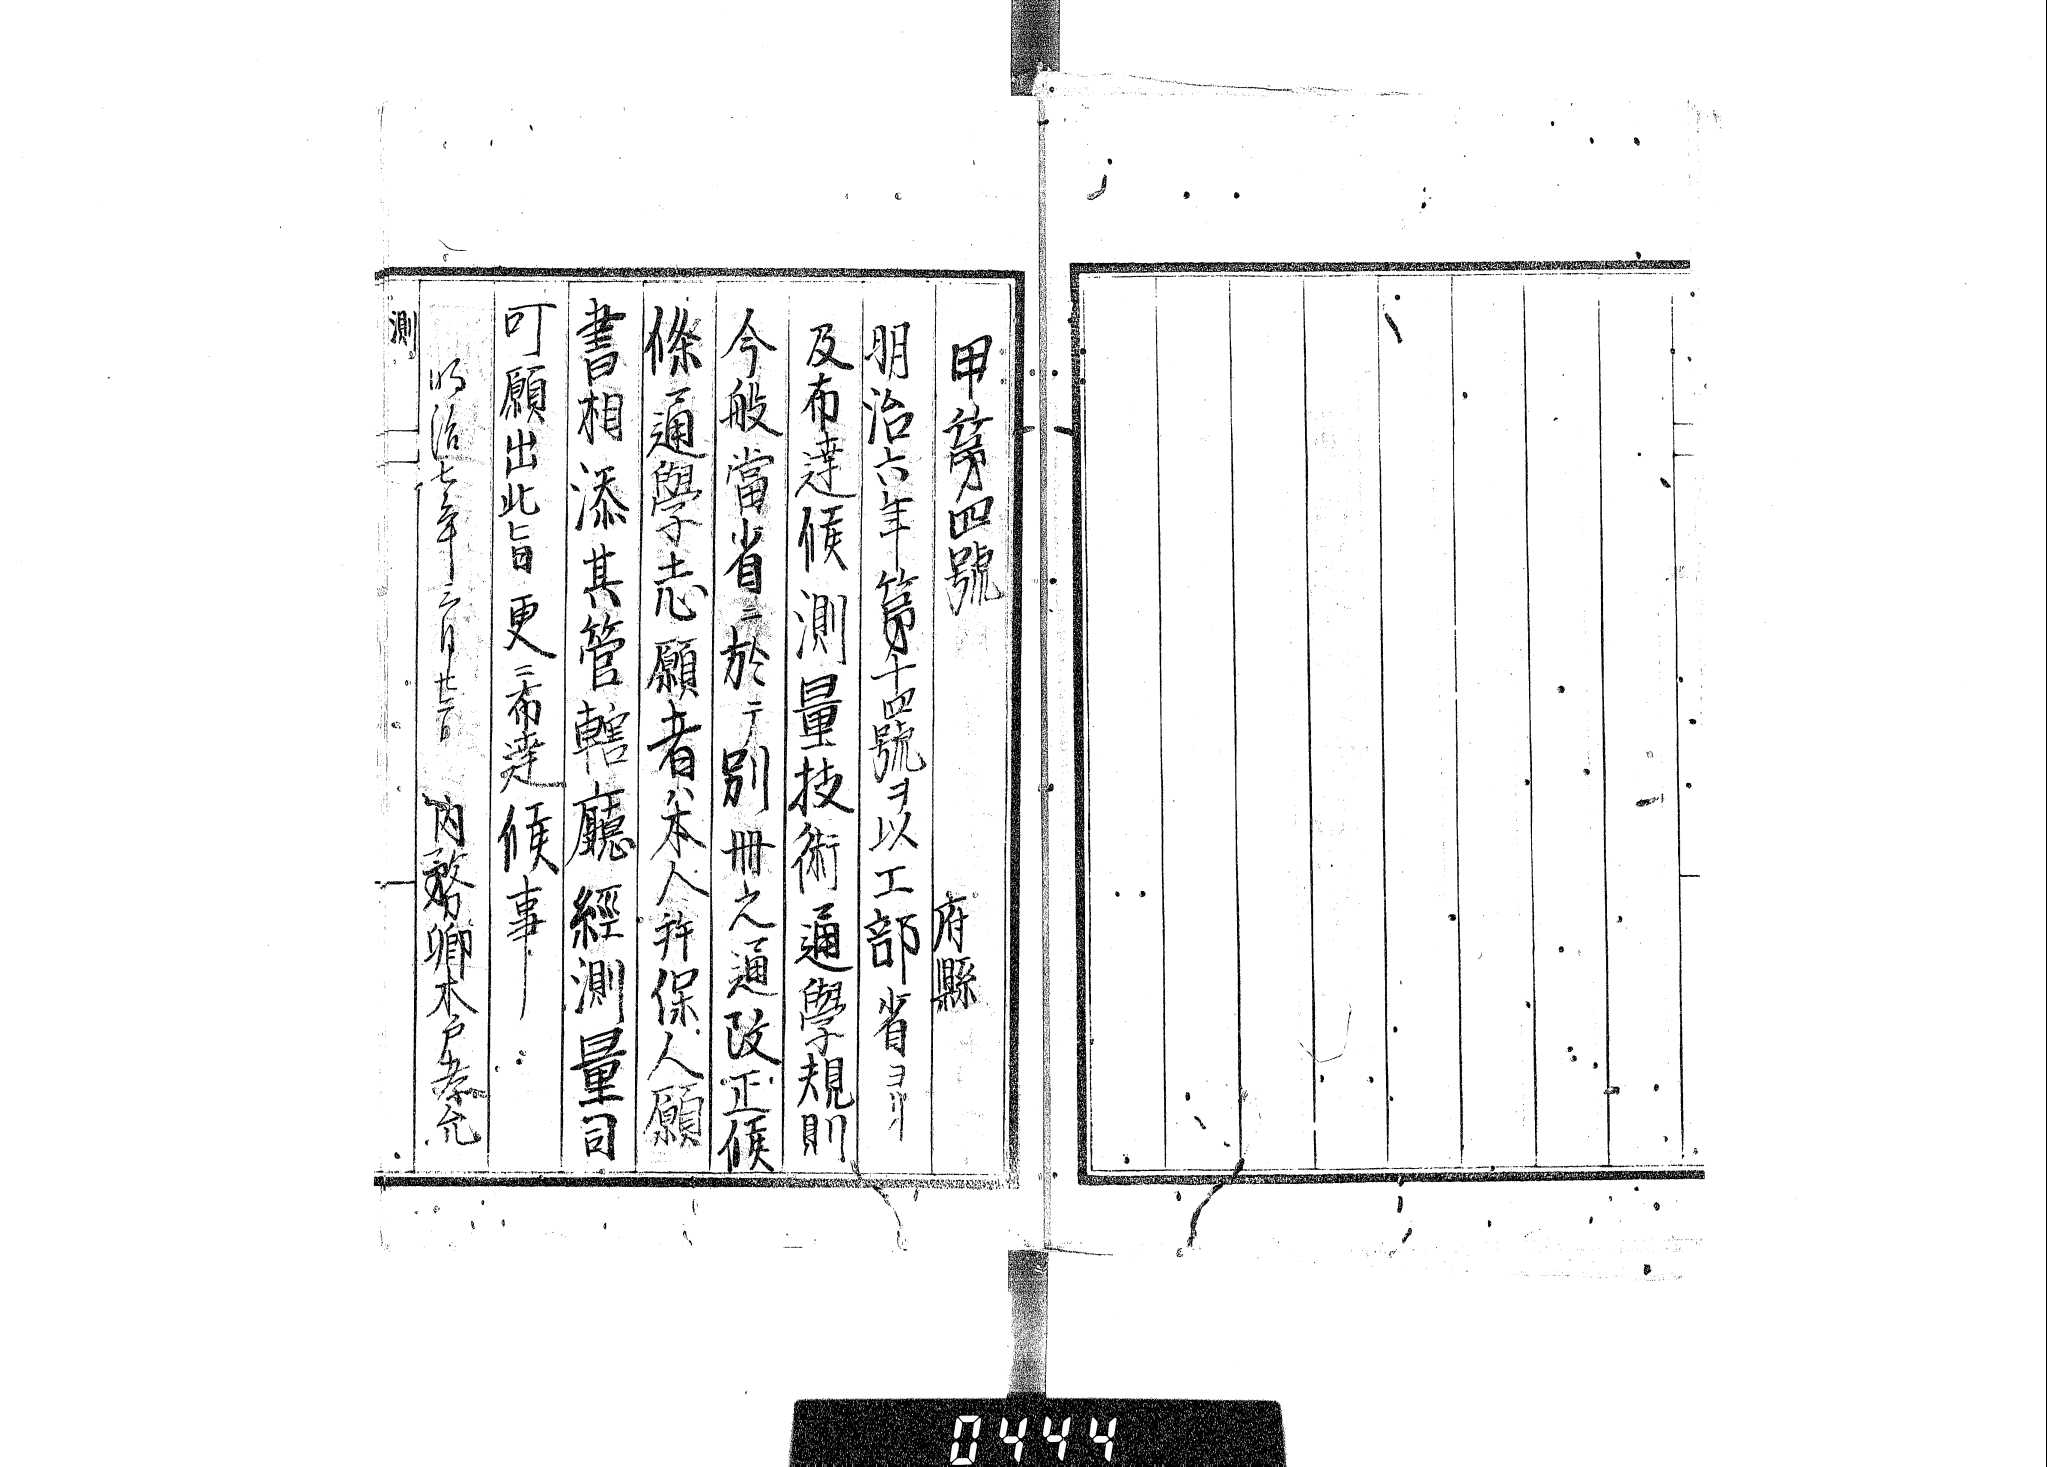 甲第四號
府縣
明治六年第十四號ヲ以工部省ヨリ
及布達候測量技術通學規則
今般當省ニ於テ別冊之通改正候
條通學志願者ハ本人幷保人願
書相添其管轄廳經測量司
可願出此旨更ニ布達候事
明治七年三月廿二日 内務卿木戸孝允
測
0444